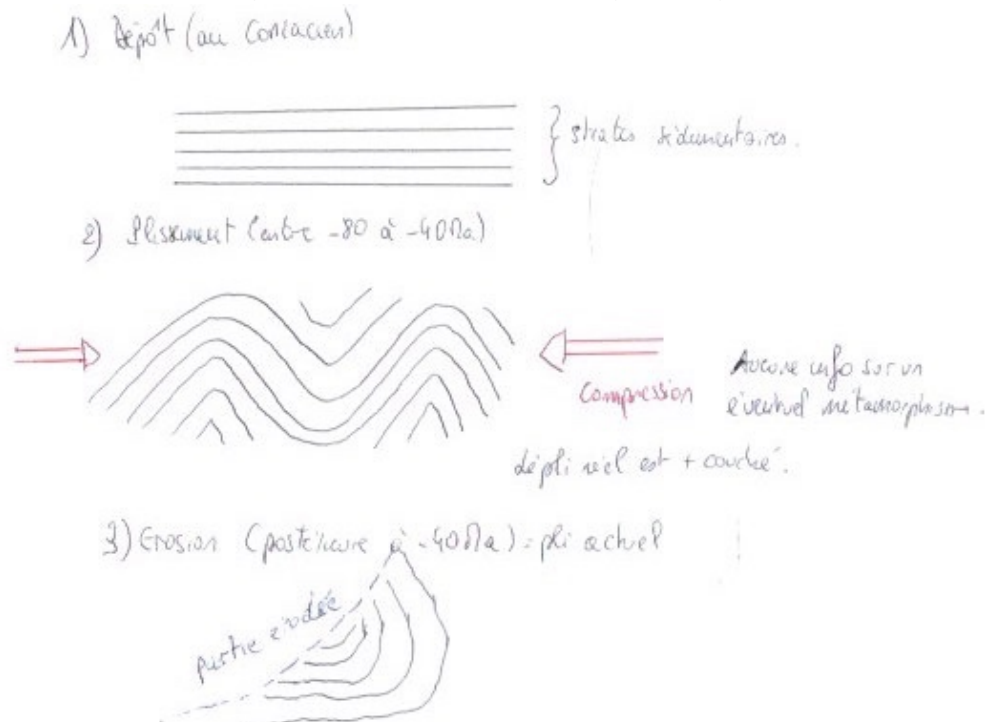 1) Dépôt (au Coniacien)
} strates sédimentaires.
2) Plissement (entre -80 à -40Ma)
Compression
Aucune info sur un
éventuel métamorphisme.
le pli réel est + couché.
3) Erosion (postérieure à -40Ma) = pli actuel
partie érodée